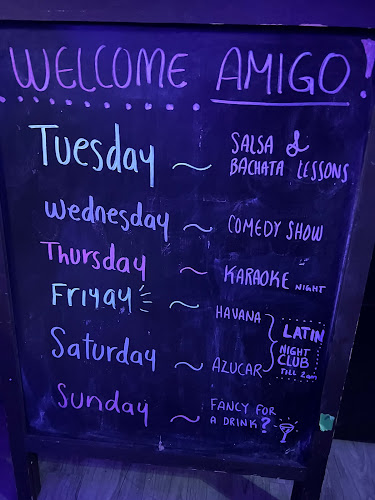 WELCOME AMIGO!
Tuesday ~ SALSA &
BACHATA LESSONS
Wednesday ~ COMEDY SHOW
Thursday ~ KARAOKE NIGHT
FRiyay ~ HAVANA
Saturday ~ AZUCAR
LATIN
NIGHT
CLUB
TILL 2am
Sunday ~ FANCY FOR
A DRINK?